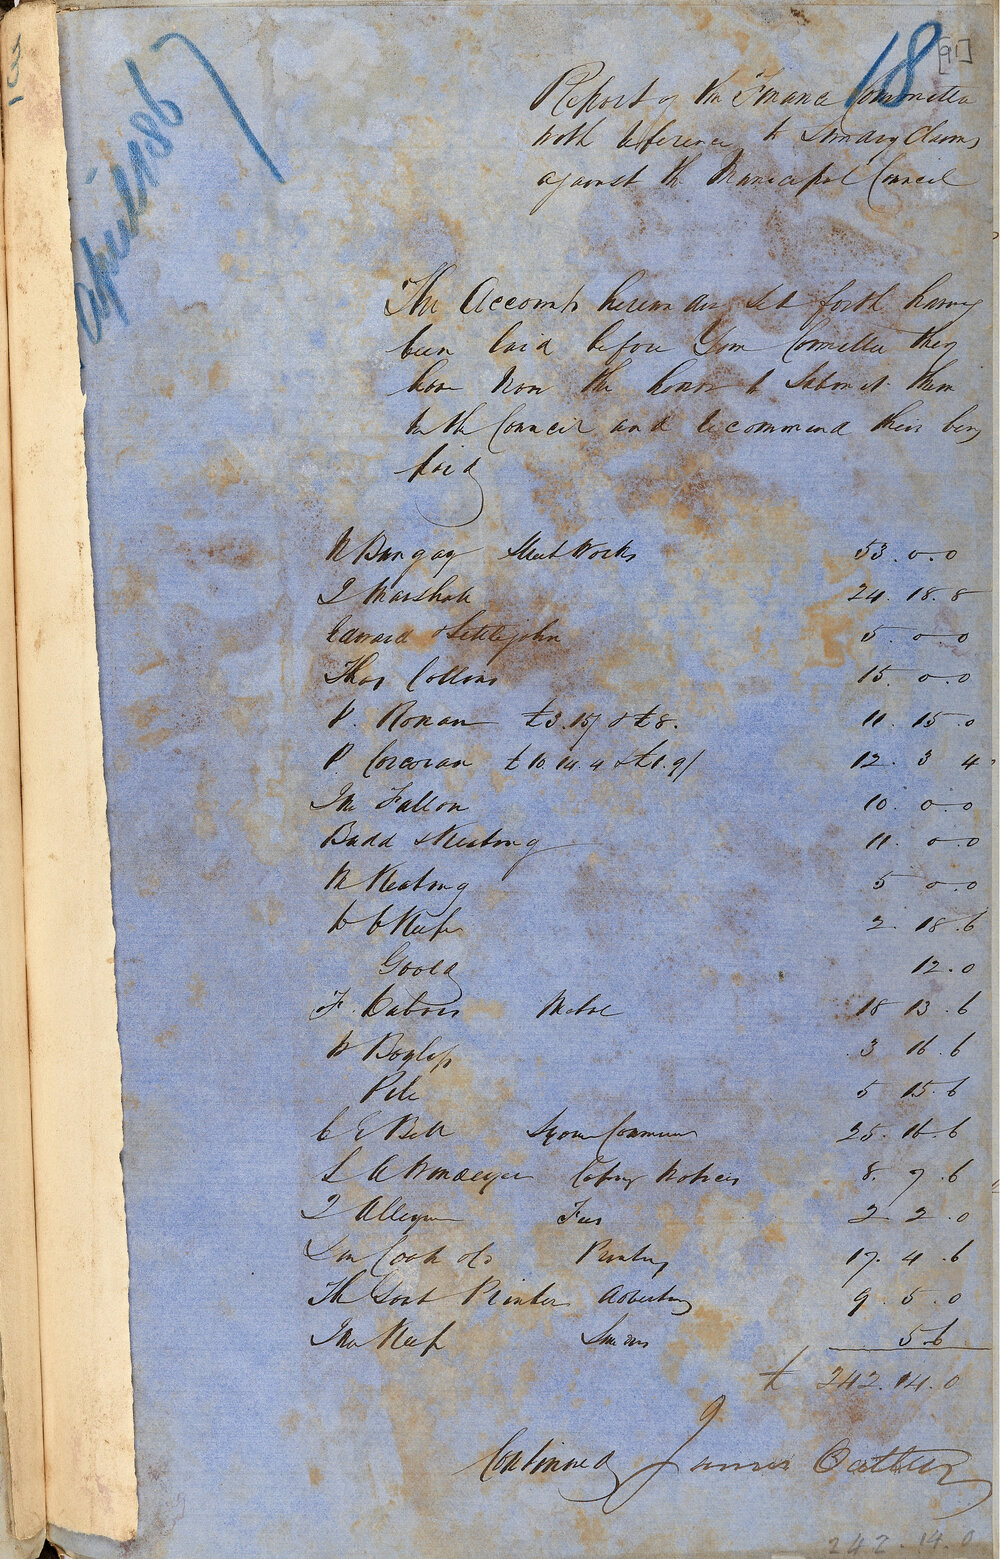 18
[91]
April 1861
Report of the Finance Committee
with reference to Sundry Claims
against the Municipal Council
The Accounts hereinunder set forth having
been laid before Your Committee they
have now the honor to submit them
to the Council and recommend their being
paid
W Bungay Street Works 53.0.0
J Marshall 24.18.8
Edward Littlejohn 5.0.0
Thos Collons 15.0.0
P. Ronan £3.15/ & £8. 11.15.0
P. Corcoran £10.14.4 & £1.9/ 12.3 4
Jno Fallon 10.0.0
Budd & Keating 11.0.0
M Keating 5 0.0
2.18.6
Goold 12.0
F. Dubois 18 13.6
W 3 16.6
Pile 5 15.6
C E Bell 25.16.6
Notices 8.7.6
J Fees 2 2.0
Cook & Co Printing 17.4.6
The Govt Printer Advertising 9.5.0
Jno Keep 5.6
£ 242.14.0
Continued James Oatley
242.14.0